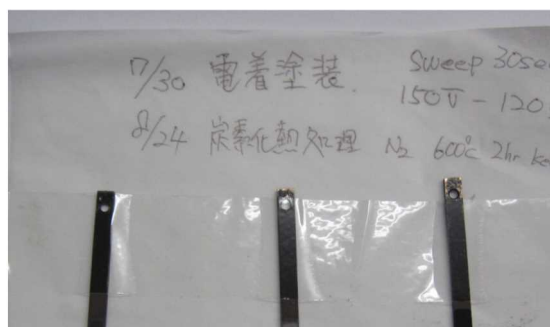 7/30 電着塗装. Sweep 30se
150V - 120
8/24 炭素化熱処理 N₂ 600℃ 2hr ke